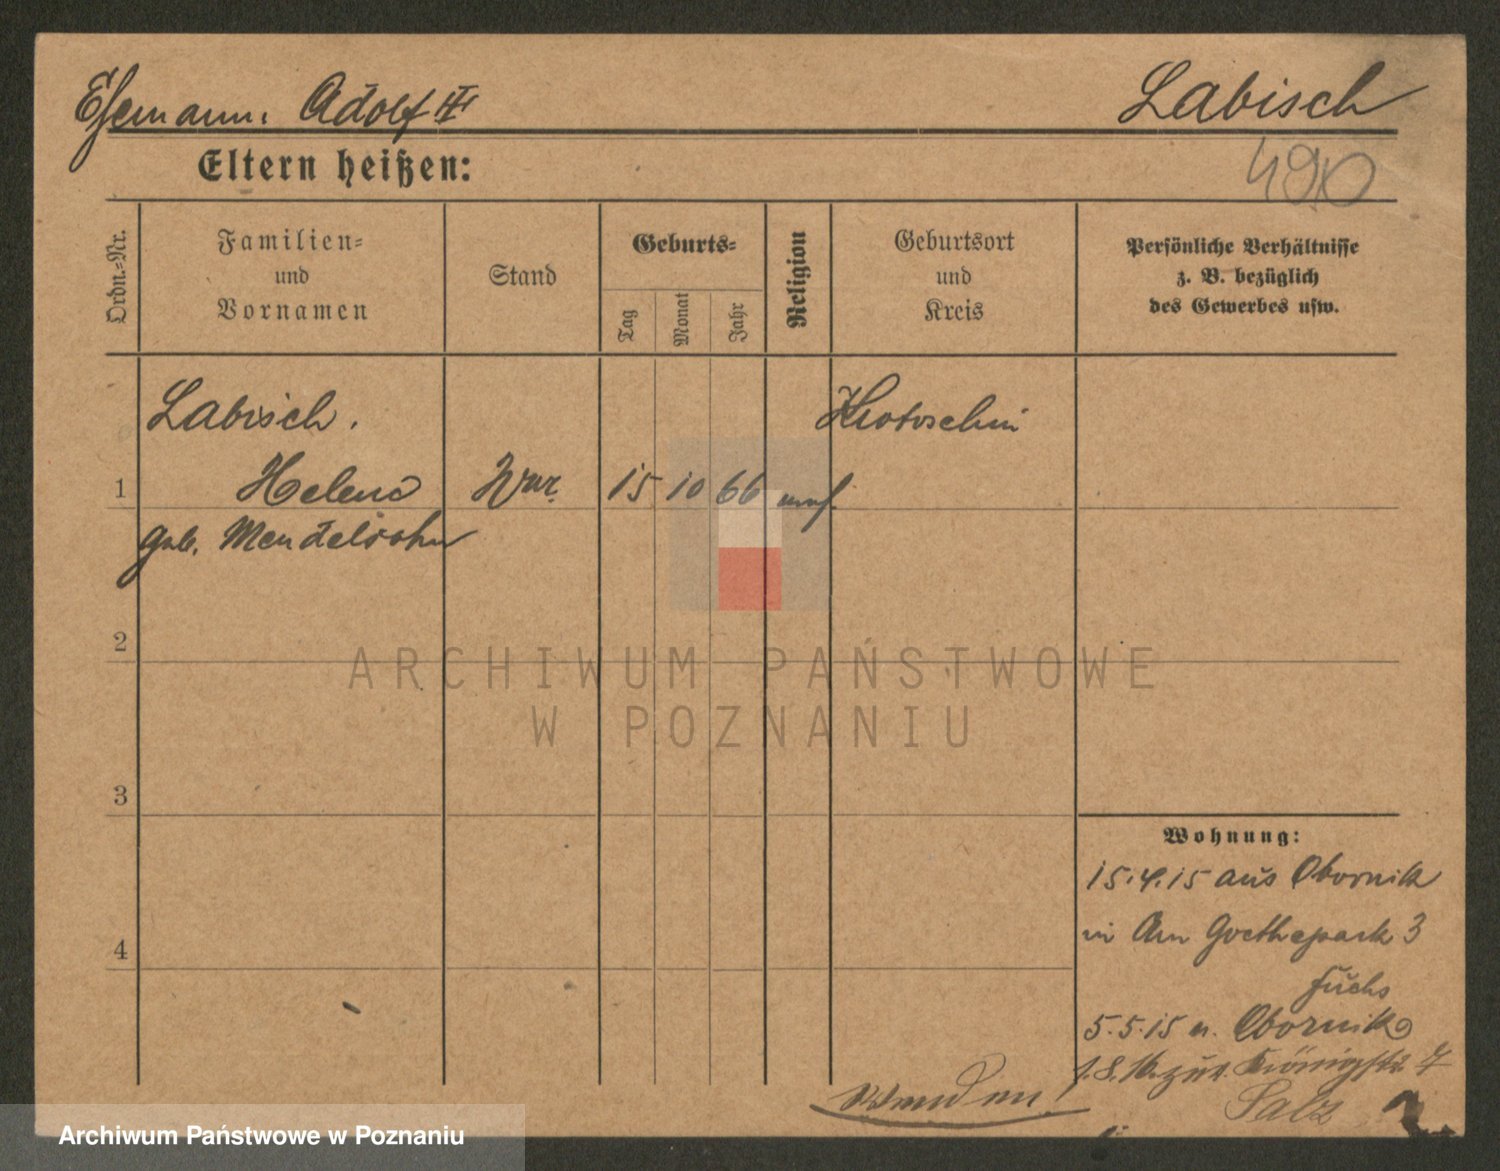 Ehemann: Adolf III Labisch
Eltern heißen:
490
Ordn.=Nr.
Familien=
und
Vornamen
Stand
Geburts=
Tag
Monat
Jahr
Religion
Geburtsort
und
Kreis
Persönliche Verhältnisse
z. B. bezüglich
des Gewerbes usw.
Labisch. Krotoschin
1 Helene Wwe. 15 10 66 mos.
geb. Mendelsohn
2
3
4
Wohnung:
15.4.15 aus Obornik
in Am Goethepark 3
Fuchs
5.5.15 n. Obornik
1.8.16. zur. Königstr. 7
Salz
Wenden!
ARCHIWUM PAŃSTWOWE
W POZNANIU
Archiwum Państwowe w Poznaniu